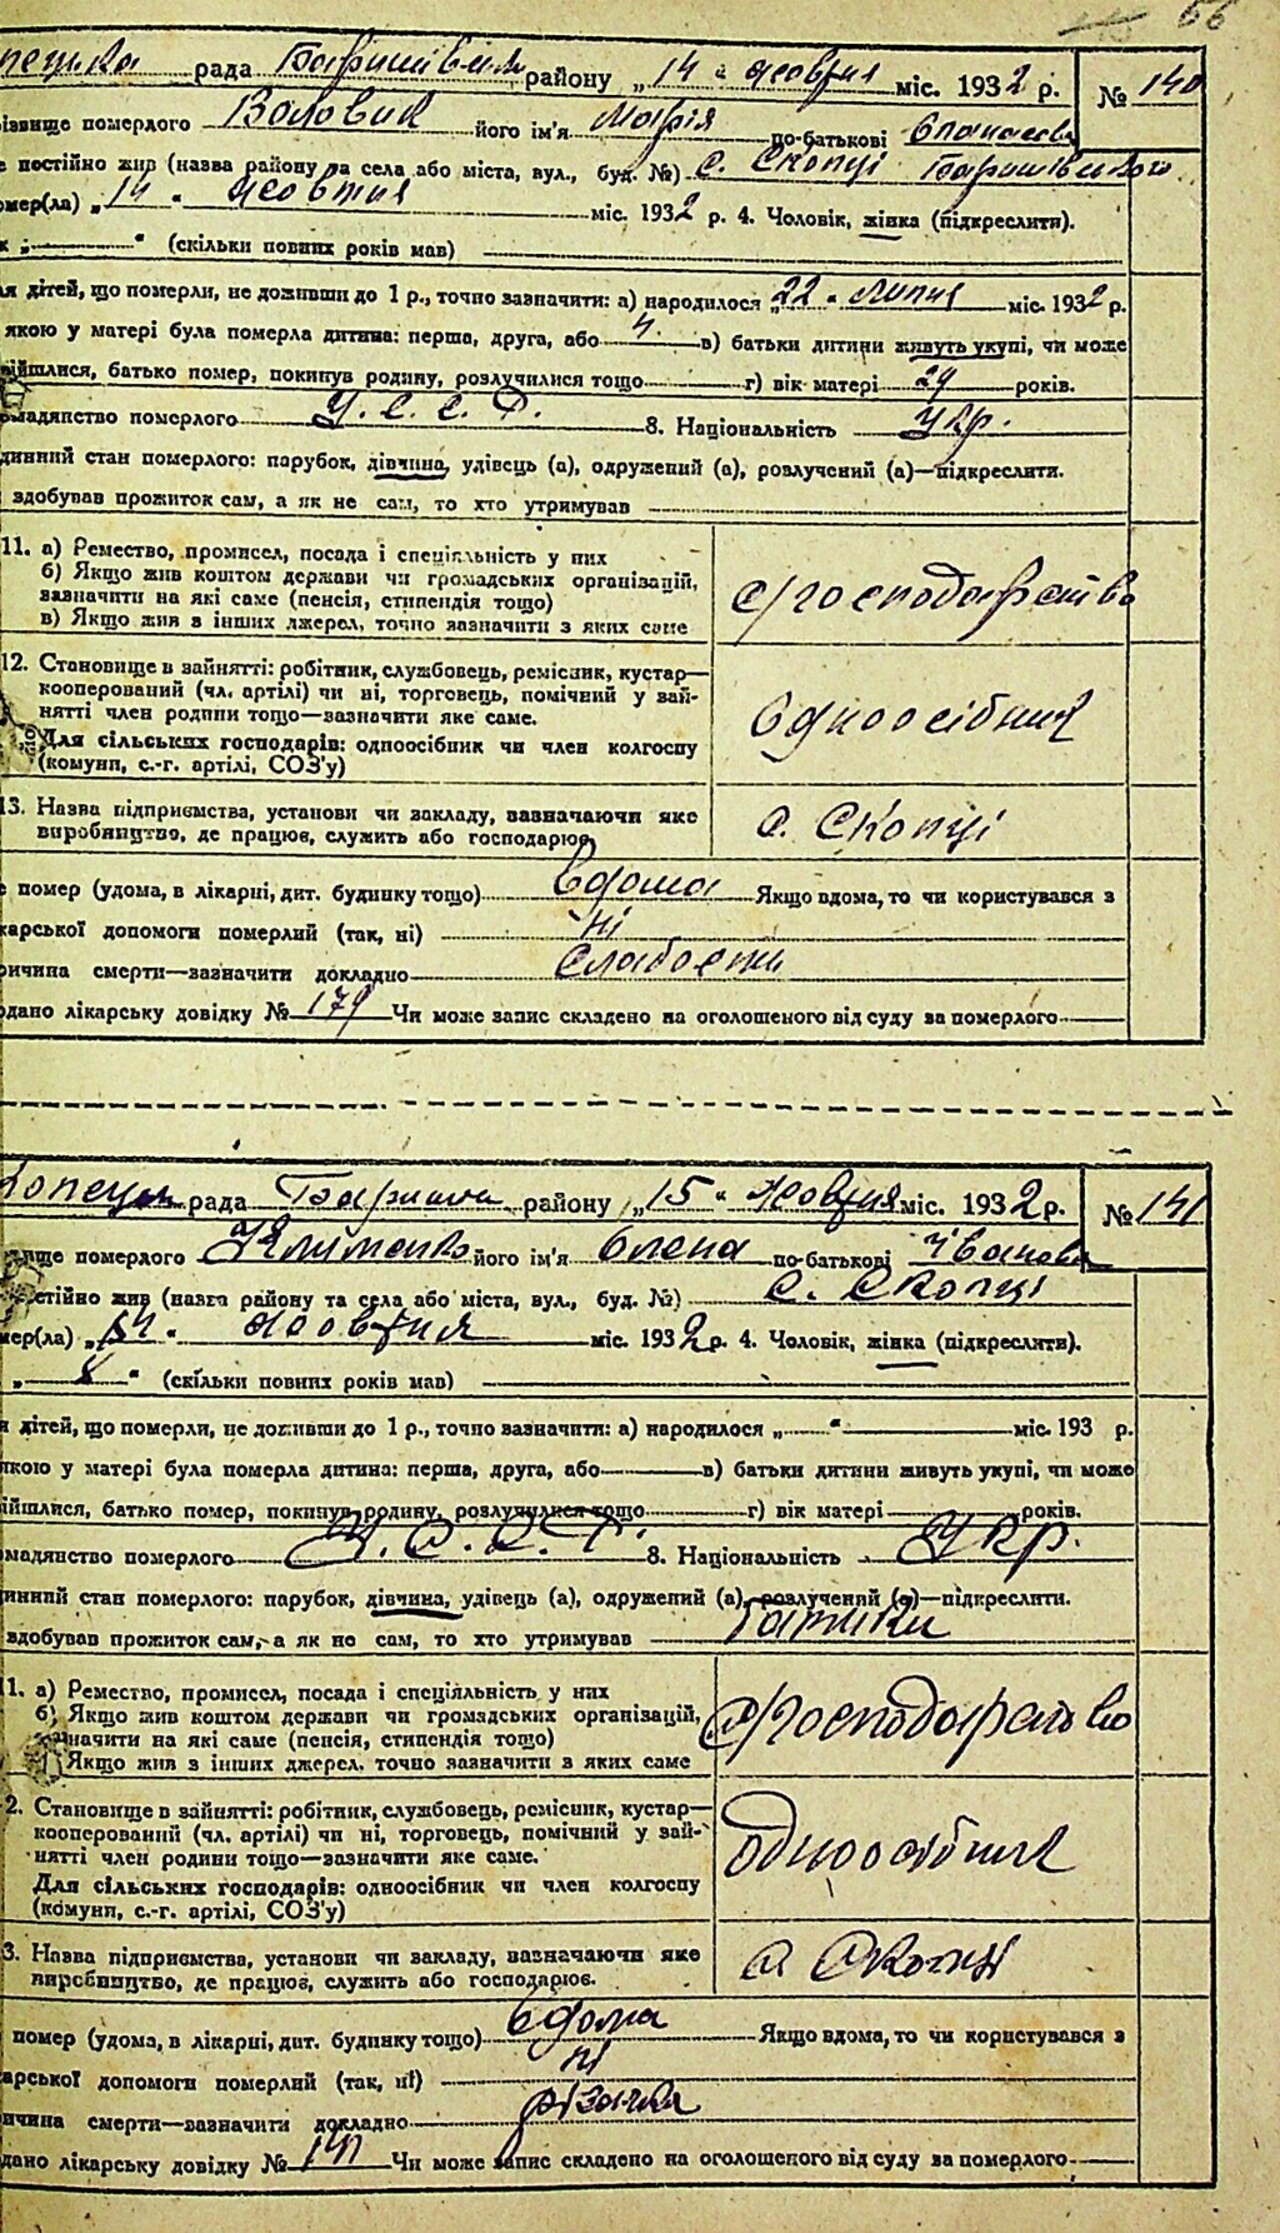 66
рада Баришівськ району „14“ жовтня міс. 1932 р. № 140
різвище померлого Воловик його ім'я Марія по-батькові Опанасова
е постійно жив (назва району та села або міста, вул., буд. №) с. Скопці Баришівського
омер(ла) „14“ жовтня міс. 1932 р. 4. Чоловік, жінка (підкреслити).
к „—“ (скільки повних років мав)
ля дітей, що померли, не доживши до 1 р., точно зазначити: а) народилося „22“ липня міс. 1932 р.
якою у матері була померла дитина: перша, друга, або 4. в) батьки дитини живуть укупі, чи може
війшлися, батько помер, покинув родину, розлучилися тощо г) вік матері 29 років.
омадянство померлого У. С. С. Р. 8. Національність Укр.
динний стан померлого: парубок, дівчина, удівець (а), одружений (а), розлучений (а)—підкреслити.
здобував прожиток сам, а як не сам, то хто утримував
11. а) Ремество, промисел, посада і спеціяльність у них
б) Якщо жив коштом держави чи громадських організацій,
зазначити на які саме (пенсія, стипендія тощо)
в) Якщо жив з інших джерел, точно зазначити з яких саме
с/господарство
12. Становище в зайнятті: робітник, службовець, ремісник, кустар—
кооперований (чл. артілі) чи ні, торговець, помічний у зай-
нятті член родини тощо—зазначити яке саме.
Для сільських господарів: одноосібник чи член колгоспу
(комуни, с.-г. артілі, СОЗ'у)
Одноосібник
13. Назва підприємства, установи чи закладу, зазначаючи яке
виробництво, де працює, служить або господарює
с. Скопці
е помер (удома, в лікарні, дит. будинку тощо) вдома Якщо вдома, то чи користувався з
карської допомоги померлий (так, ні) ні
ричина смерти—зазначити докладно слабости
одано лікарську довідку № 179 Чи може запис складено на оголошеного від суду за померлого
рада Бариш району „15“ жовтня міс. 1932 р. № 141
вище померлого Клименко його ім'я Олена по-батькові Іванова
остійно жив (назва району та села або міста, вул., буд. №) с. Скопці
мер(ла) „14“ жовтня міс. 1932 р. 4. Чоловік, жінка (підкреслити).
„8“ (скільки повних років мав)
я дітей, що померли, не доживши до 1 р., точно зазначити: а) народилося „—“ міс. 193 р.
якою у матері була померла дитина: перша, друга, або в) батьки дитини живуть укупі, чи може
ійшлися, батько помер, покинув родину, розлучилися тощо г) вік матері років.
мадянство померлого У. С. С. Р. 8. Національність Укр.
инний стан померлого: парубок, дівчина, удівець (а), одружений (а), розлучений (а)—підкреслити.
вдобував прожиток сам, а як не сам, то хто утримував батьки
1. а) Ремество, промисел, посада і спеціяльність у них
б) Якщо жив коштом держави чи громадських організацій,
значити на які саме (пенсія, стипендія тощо)
Якщо жив з інших джерел, точно зазначити з яких саме
с/господарство
2. Становище в зайнятті: робітник, службовець, ремісник, кустар—
кооперований (чл. артілі) чи ні, торговець, помічний у зай-
нятті член родини тощо—зазначити яке саме.
Для сільських господарів: одноосібник чи член колгоспу
(комуни, с.-г. артілі, СОЗ'у)
Одноосібник
3. Назва підприємства, установи чи закладу, зазначаючи яке
виробництво, де працює, служить або господарює.
с Скопці
помер (удома, в лікарні, дит. будинку тощо) вдома Якщо вдома, то чи користувався з
карської допомоги померлий (так, ні) ні
ичина смерти—зазначити докладно різачка
дано лікарську довідку № Чи може запис складено на оголошеного від суду за померлого